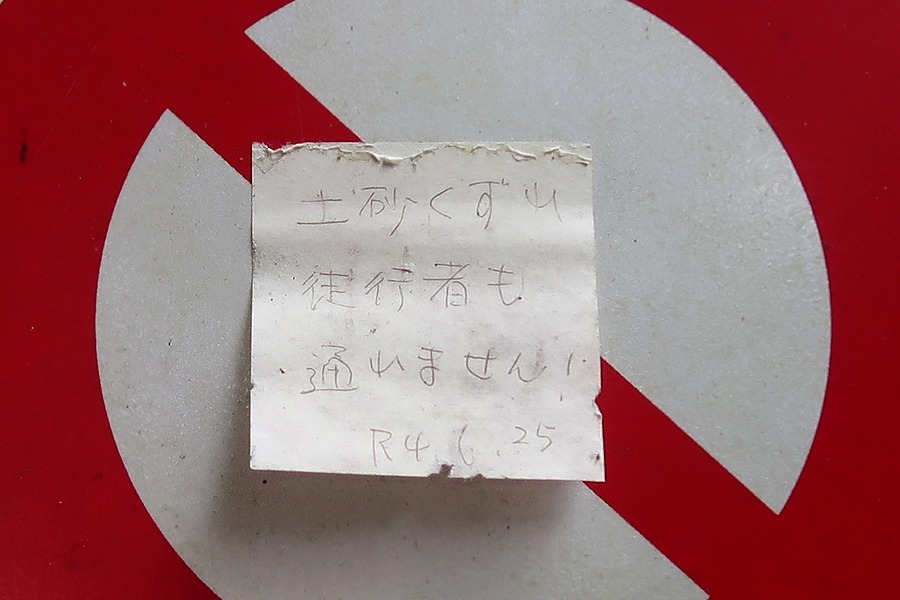 土砂くずれ
徒行者も
通れません!
R4 6.25